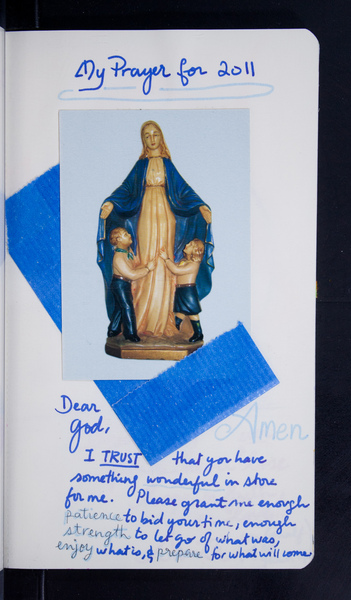 My Prayer for 2011
Dear
God,
Amen
I TRUST that you have
something wonderful in store
for me. Please grant me enough
patience to bid your time, enough
strength to let go of what was,
enjoy what is, & prepare for what will come